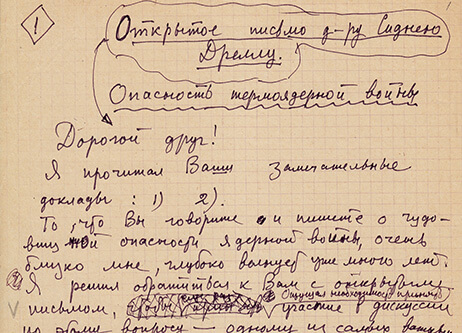 1
Открытое письмо д-ру Сиднею
Дреллу.
Опасность термоядерной войны
Дорогой друг!
Я прочитал Ваши замечательные
доклады : 1) 2).
То, что Вы говорите и пишете о чудо-
вищной опасности ядерной войны, очень
близко мне, глубоко волнует уже много лет.
Я решил обратиться к Вам с открытым
Ощущая необходимость принять
письмом, участие в дискуссии
по этому вопросу — одному из самых важных